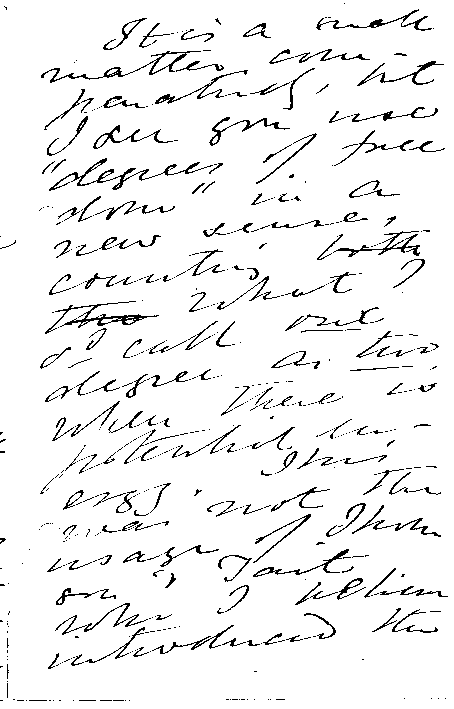 It is a small
matter com-
paratively, but
I see you use
"degrees of free
dom" in a
new sense,
counting both
the what I
I call one
degree as two
when there is
potential en-
ergy. This
was not the
usage of Thom
son & Tait
who I believe
introduced the